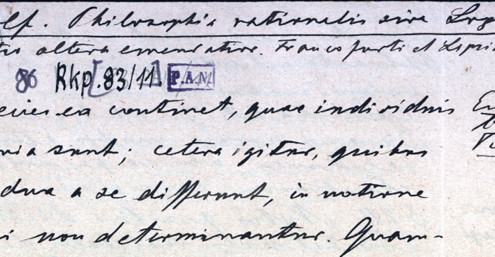 lf. Philosophia rationalis sive Log
tio altera emendatior. Francofurti et Lipsia
86 Rkp. 83/11 P.A.N.
ecies ea continet, quae individuis
nia sunt; cetera igitur, quibus
dua a se differunt, in notione
i non determinantur. Quam-